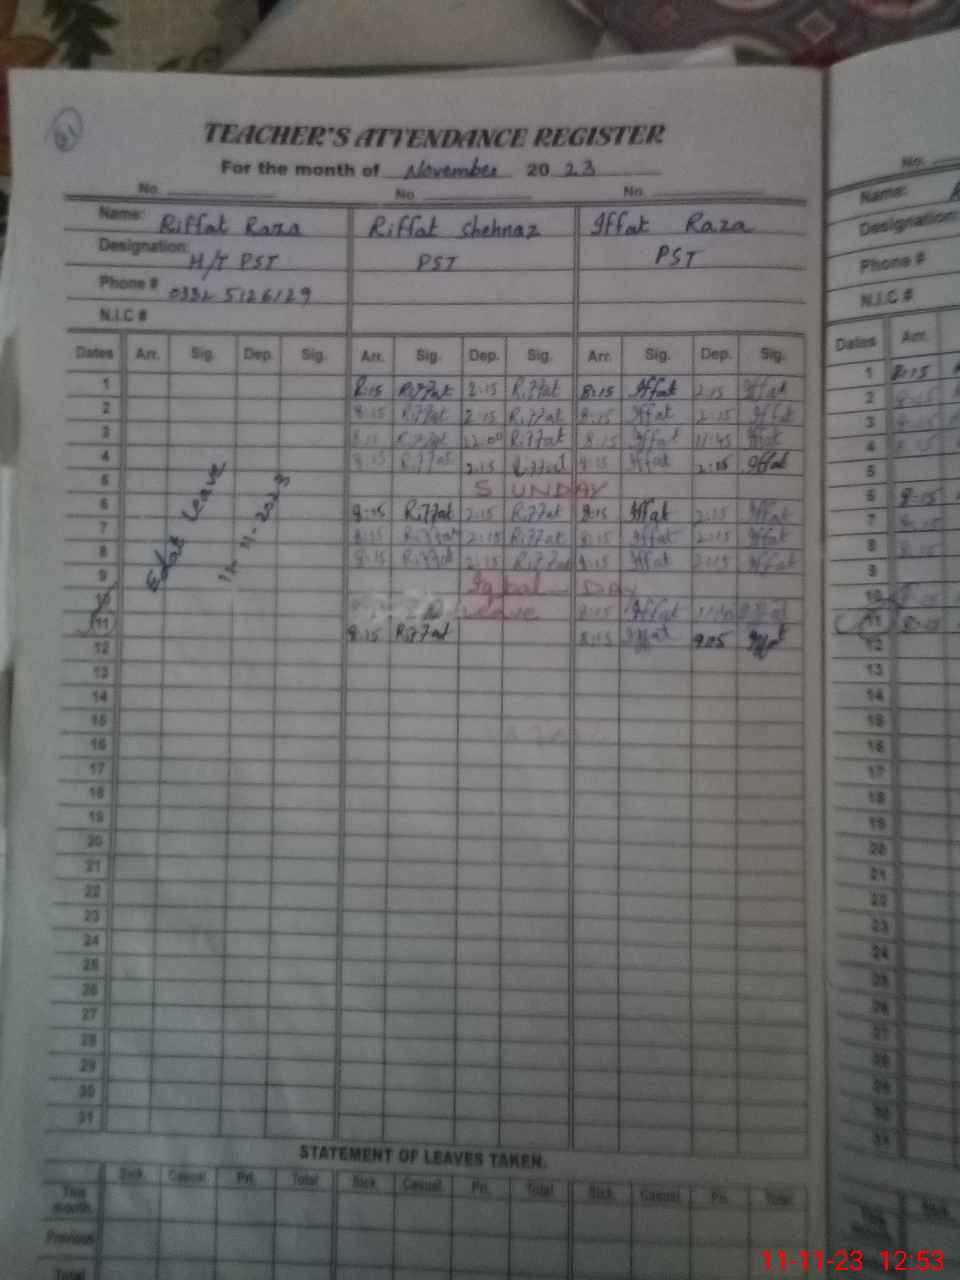 TEACHER'S ATTENDANCE REGISTER
For the month of November 20 23
No. No. No.
Name: Riffat Raza Riffat Shehnaz Iffat Raza
Designation: H/T PST PST PST
Phone # 0332 5126129
N.I.C #
Dates Arr. Sig. Dep. Sig. Arr. Sig. Dep. Sig. Arr. Sig. Dep. Sig.
1 8:15 Riffat 2:15 Riffat 8:15 Iffat 2:15 Iffat
2 8:15 Riffat 2:15 Riffat 8:15 Iffat 2:15 Iffat
3 8:15 Riffat 12:00 Riffat 8:15 Iffat 11:45 Iffat
4 8:15 Riffat 2:15 Riffat 8:15 Iffat 2:15 Iffat
5 SUNDAY
6 8:15 Riffat 2:15 Riffat 8:15 Iffat 2:15 Iffat
7 8:15 Riffat 2:15 Riffat 8:15 Iffat 2:15 Iffat
8 8:15 Riffat 2:15 Riffat 8:15 Iffat 2:15 Iffat
9 Iqbal DAY
10 Leave 8:15 Iffat Iffat
11 8:15 Riffat 8:15 Iffat 9:05 Iffat
Leave
12
13
14
15
16
17
18
19
20
21
22
23
24
25
26
27
28
29
30
31
STATEMENT OF LEAVES TAKEN.
Sick. Casual. Pri. Total Sick. Casual. Pri. Total Sick. Casual. Pri. Total
This month.
Previous
Total
No.
Name:
Designation:
Phone #
N.I.C #
Dates Arr.
1 8:15
2 8:15
3 8:15
4 8:15
5
6 8:15
7 8:15
8 8:15
9
10 8:15
11 8:15
12
13
14
15
16
17
18
19
20
21
22
23
24
25
26
27
28
29
30
31
This month
Sick.
11-11-23 12:53